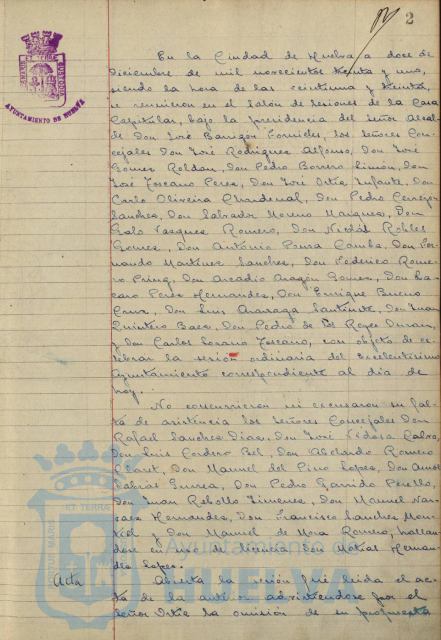 2
AYUNTAMIENTO DE HUELVA
En la Ciudad de Huelva a doce de
Diciembre de mil novecientos treinta y uno,
siendo la hora de las veintiuna y treinta,
se reunieron en el Salón de Sesiones de la Casa
Capitular, bajo la presidencia del Señor Alcal-
de Don José Barrigón Fornieles, los Señores Con-
cejales Don José Rodriguez Alfonso, Don José
Gomez Roldan, Don Pedro Borrero Limón, Don
José Toscano Perez, Don José Ortiz Infante, Don
Carlo Oliveira Chardenal, Don Pedro Cerrejón
Sanchez, Don Salvador Moreno Marquez, Don
Galo Vazquez Romero, Don Nicolás Robles
Gomez, Don António Ponce Don Fer-
nando Martínez Sanchez, Don Federico Rome-
ro Don Arcadio Aragón Gomez, Don
Perez Hernandez, Don Enrique Bueno
Cruz, Don Luis Don Juan
Quintero Baez, Don Pedro de los Reyes Duran,
y Don Carlos Lozano Toscano, con objeto de ce-
lebrar la sesión ordinaria del Excelentísimo
Ayuntamiento correspondiente al día de
hoy.
No concurrieron ni excusaron su fal-
ta de asistencia los Señores Concejales Don
Rafael Sanchez Diaz, Don José Calvo,
Don Luis Cordero Bel, Don Abelardo Romero
Claret, Don Manuel del Pino Lopez, Don
Gurrea, Don Pedro Garrido Perelló,
Don Juan Rebollo Jimenez, Don Manuel Nar-
vaez Hernandez, Don Francisco Sanchez Mon-
tiel y Don Manuel de Mora Romero, hallan-
dose en uso de licencia Don Matías Hernan-
dez Lopez.
Acta
Abierta la sesión fué leida el ac-
ta de la anterior advirtiendose por el
Señor Ortiz la omisión de su propuesta
Ayuntamiento de
HUELVA